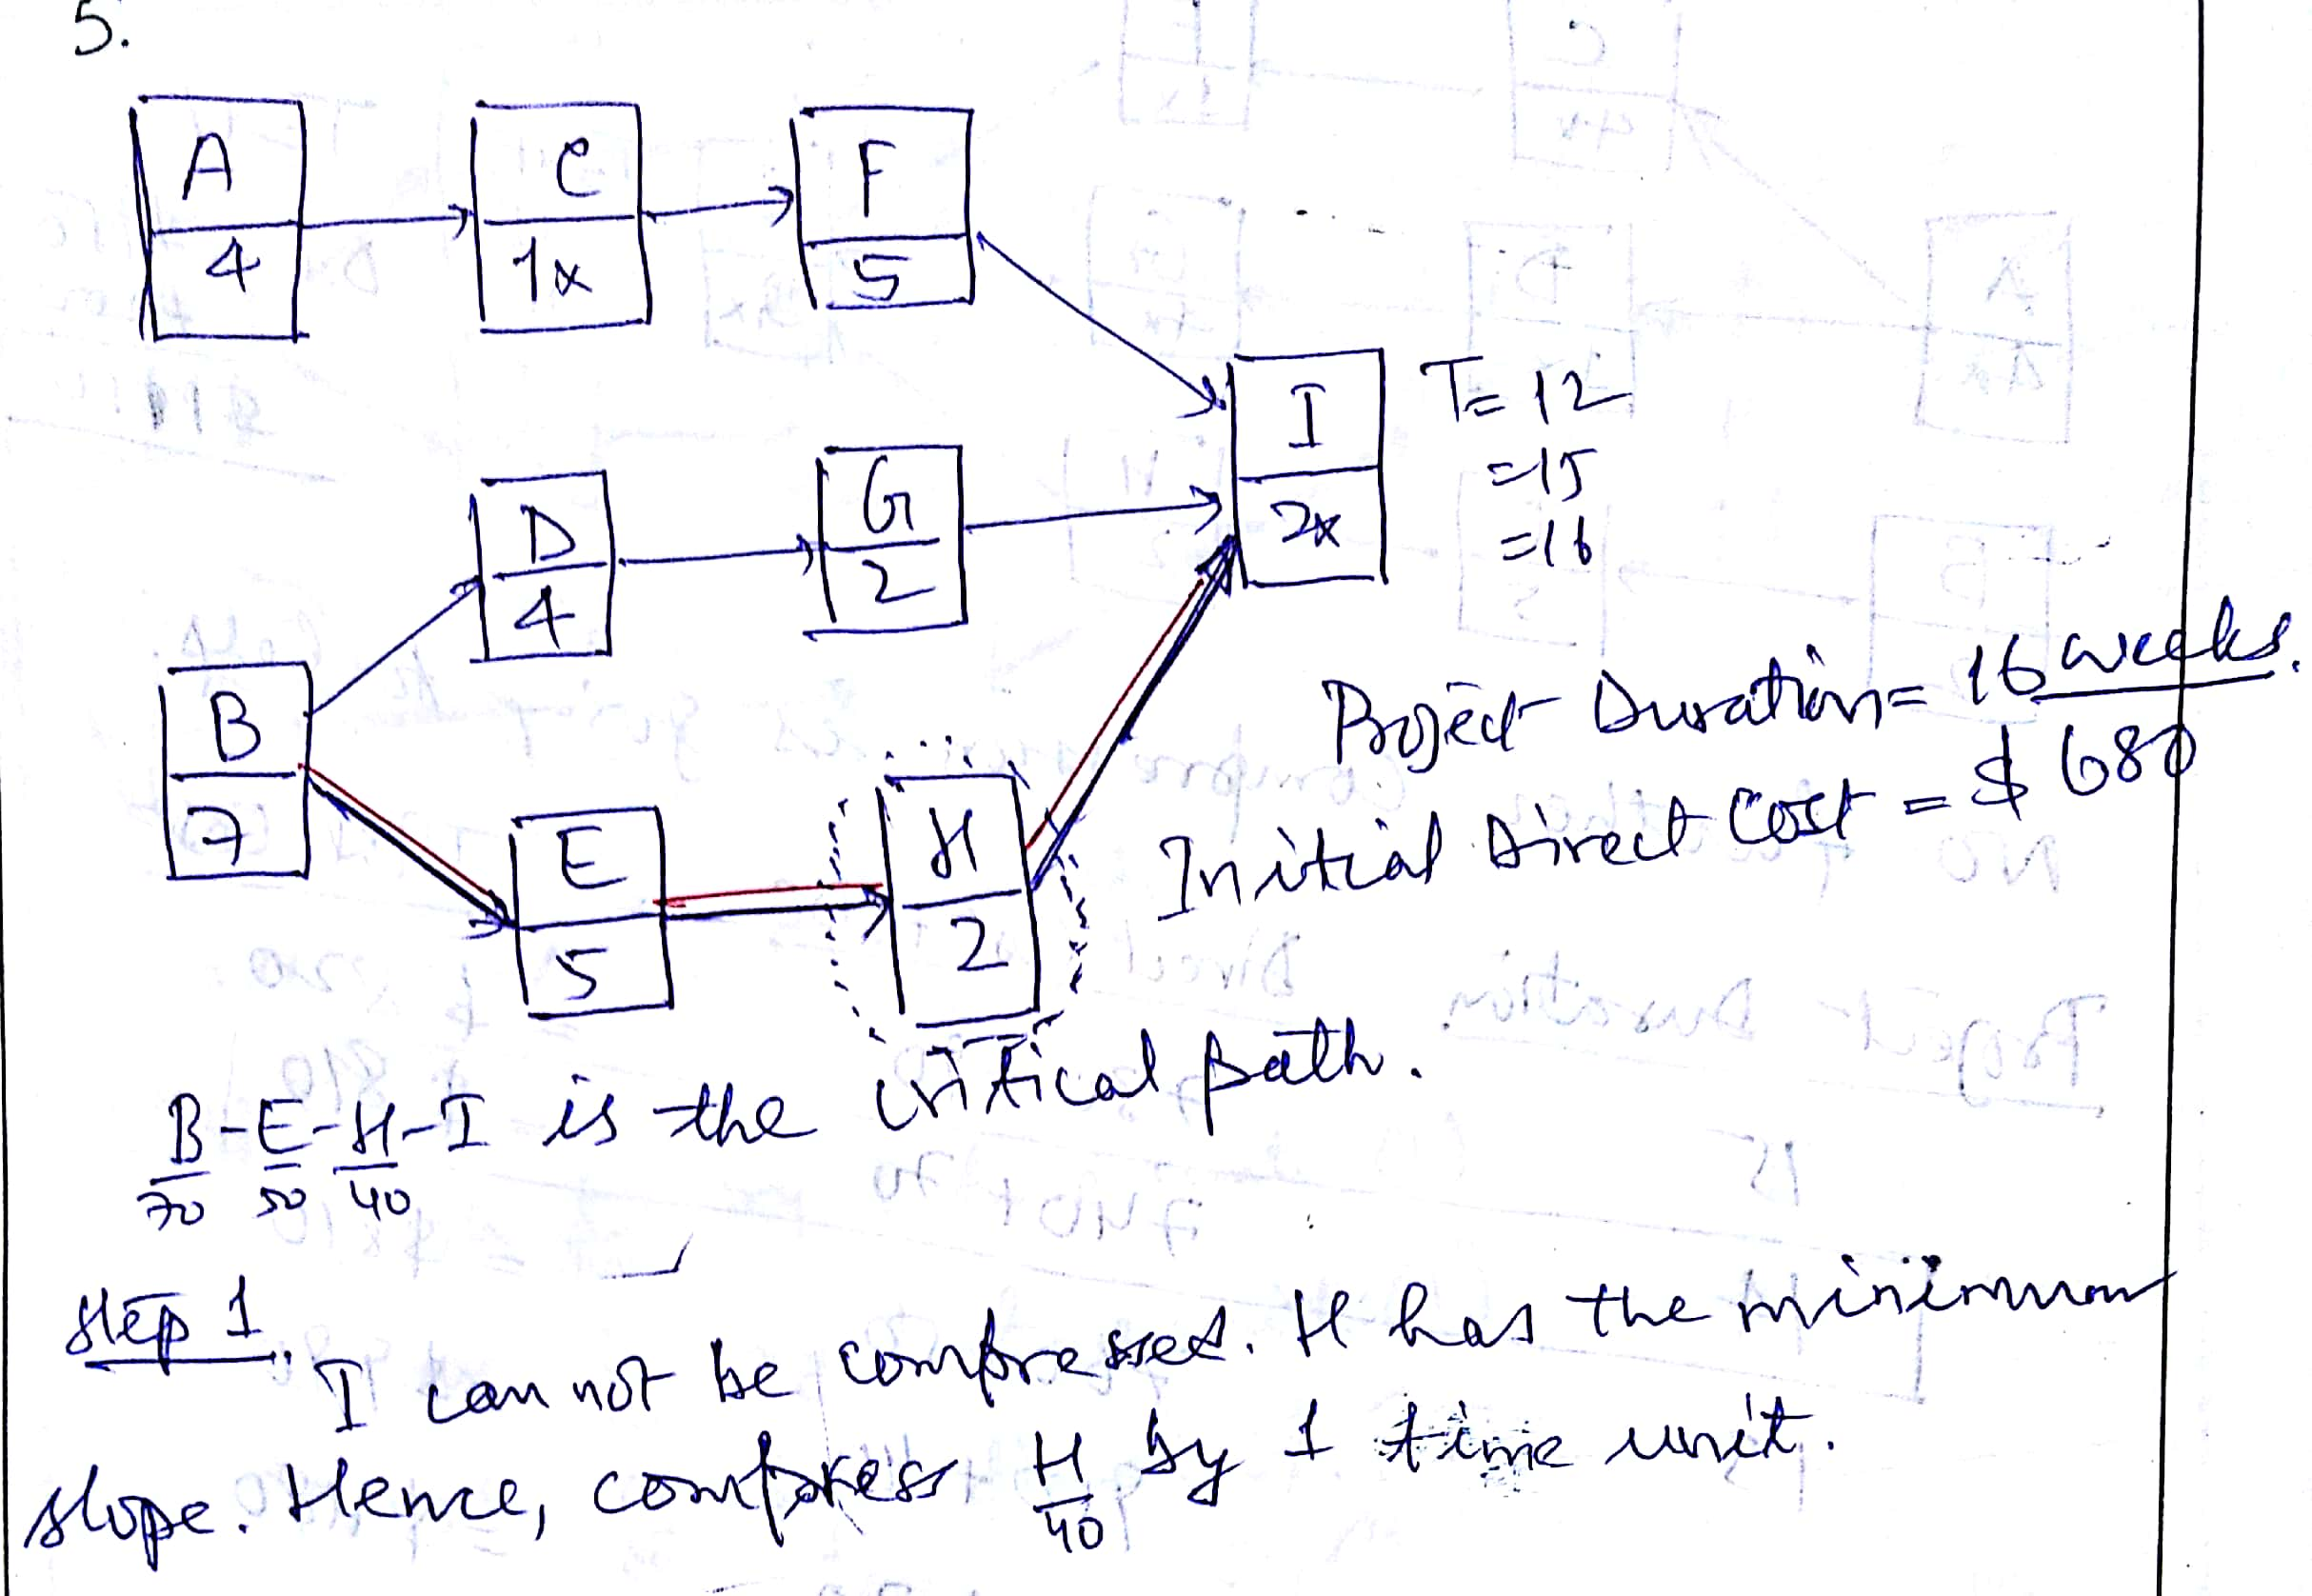 5.
A
4
C
1x
F
5
I
2x
T= 12
=15
=16
D
4
G
2
B
7
E
5
H
2
Project Duration= 16 weeks.
Initial Direct Cost = $ 680
B-E-H-I is the critical path.
70 50 40
Step 1.
I can not be compressed. H has the minimum
slope. Hence, compress H by 1 time unit.
40